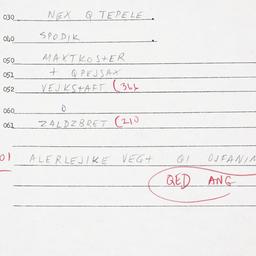 030 NEX Q TEPELE.
040 SPODIK.
050 MAXTKOSTER
051 + QPEJSAX
052 VEJKSTAFT (361
060 O
061 ZALDZBRET (210
01 ALERLEJIKE VEGT QI OJFANIN
QED ANG